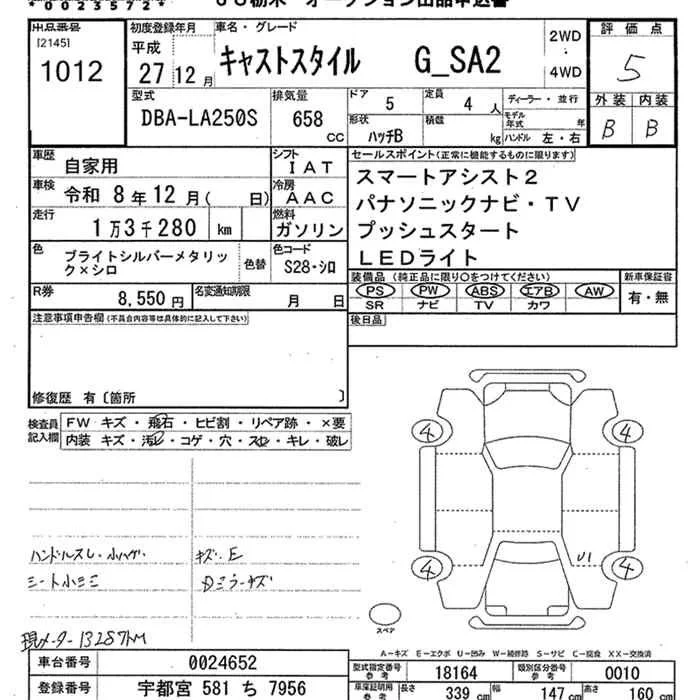 *0023572*
JU栃木 オークション出品申込書
出品番号
[2145]
1012
初度登録年月
平成
27年12月
車名・グレード
キャストスタイル G_SA2
2WD
・
4WD
評価点
5
外装 内装
B B
型式
DBA-LA250S
排気量
658 cc
ドア
5
定員
4 人
形状
ハッチB
積載
kg
ディーラー・並行
モデル年式 年
ハンドル 左・右
車歴 自家用
シフト IAT
車検 令和 8年12月( 日)
冷房 AAC
走行 1万3千280 km
燃料 ガソリン
色 ブライトシルバーメタリック×シロ
色替
色コード
S28・シロ
R券 8,550円
名変通知期限 月 日
セールスポイント(正常に機能するものに限ります)
スマートアシスト2
パナソニックナビ・TV
プッシュスタート
LEDライト
装備品 (純正品に限り○をつけてください)
PS PW ABS エアB AW
SR ナビ TV カワ
新車保証書
有・無
後日品
注意事項申告欄(不具合内容等は具体的に記入して下さい)
修復歴 有〔箇所 〕
検査員記入欄
FW キズ・飛石・ヒビ割・リペア跡・×要
内装 キズ・汚レ・コゲ・穴・スレ・キレ・破レ
ハンドルスレ・小ハゲ
キズ・E
シート小シミ
Dミラーキズ
現メーター13287KM
4 4
4 4
U1
スペア
A-キズ E-エクボ U-凹み W-補修跡 S-サビ C-腐食 XX-交換済
車台番号 0024652
登録番号 宇都宮 581 ち 7956
型式指定番号 参考 18164
類別区分番号 参考 0010
車庫証明用 参考
長さ 339 cm
幅 147 cm
高さ 160 cm